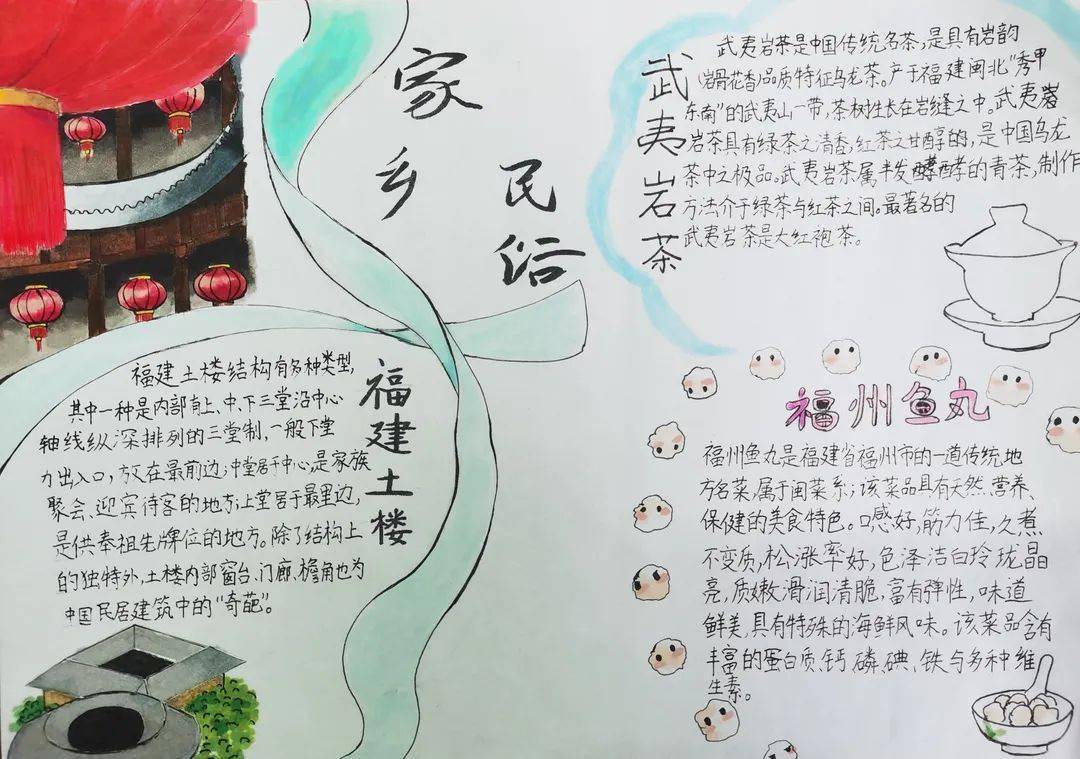 家
乡
民
俗
武
夷
岩
茶
武夷岩茶是中国传统名茶,是具有岩韵
(岩骨花香)品质特征乌龙茶。产于福建闽北"秀甲
东南"的武夷山一带,茶树生长在岩缝之中。武夷岩
岩茶具有绿茶之清香,红茶之甘醇的,是中国乌龙
茶中之极品。武夷岩茶属半发酵酵的青茶,制作
方法介于绿茶与红茶之间。最著名的
武夷岩茶是大红袍茶。
福
建
土
楼
福建土楼结构有多种类型,
其中一种是内部有上、中、下三堂沿中心
轴线纵深排列的三堂制,一般下堂
力出入口,放在最前边;中堂居于中心,是家族
聚会、迎宾待客的地方;上堂居于最里边,
是供奉祖先牌位的地方。除了结构上
的独特外,土楼内部窗台、门廊、檐角也为
中国民居建筑中的"奇葩"。
福州鱼丸
福州鱼丸是福建省福州市的一道传统地
方名菜,属于闽菜系;该菜品具有天然、营养、
保健的美食特色。口感好,筋力佳,久煮
不变质,松涨率好,色泽洁白玲珑晶
亮,质嫩滑润清脆,富有弹性,味道
鲜美,具有特殊的海鲜风味。该菜品含有
丰富的蛋白质、钙、磷、碘、铁与多种维
生素。